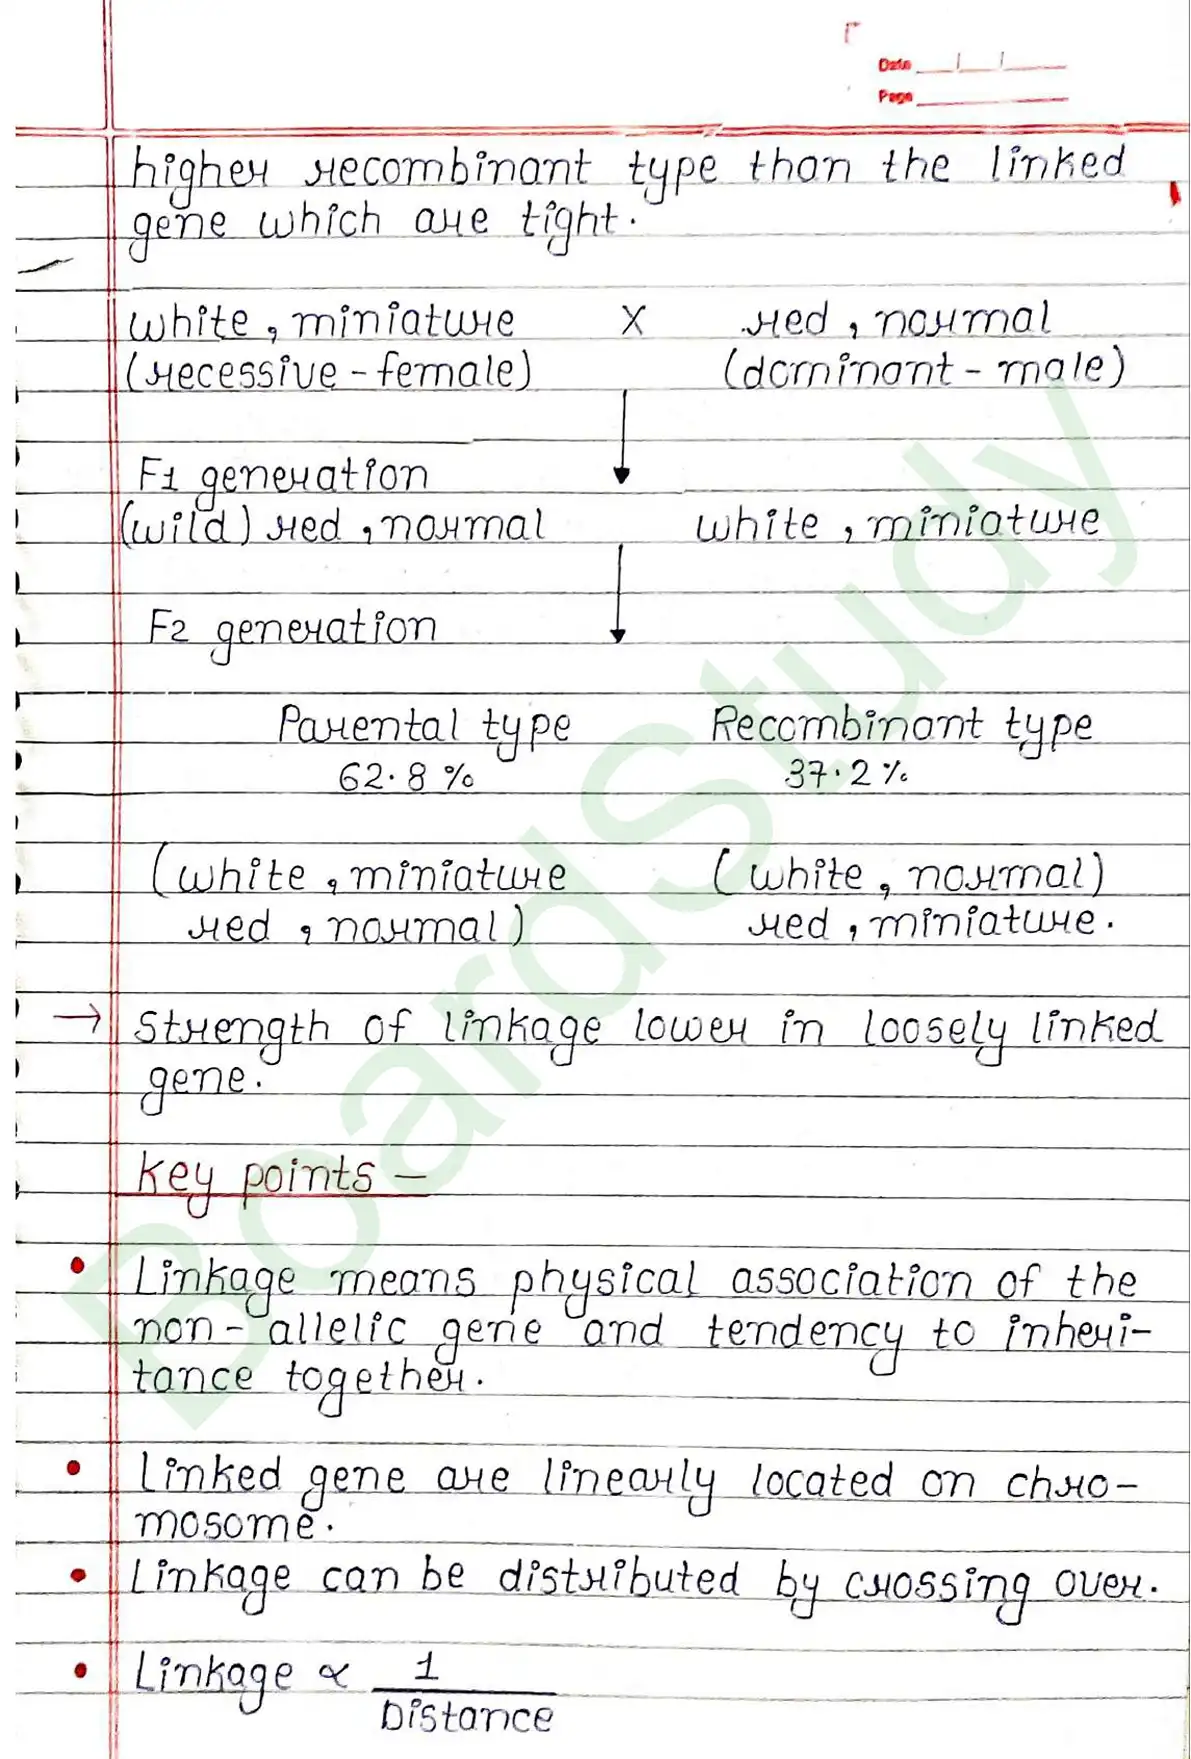 Date
Page
higher recombinant type than the linked
gene which are tight.
white, miniature X red, normal
(recessive-female) (dominant-male)
F1 generation
(wild) red, normal white, miniature
F2 generation
Parental type Recombinant type
62.8 % 37.2 %
(white, miniature (white, normal)
red, normal) red, miniature.
→ Strength of linkage lower in loosely linked
gene.
Key points —
• Linkage means physical association of the
non-allelic gene and tendency to inheri-
tance together.
• Linked gene are linearly located on chro-
mosome.
• Linkage can be distributed by crossing over.
• Linkage ∝ 1
Distance
BoardStudy